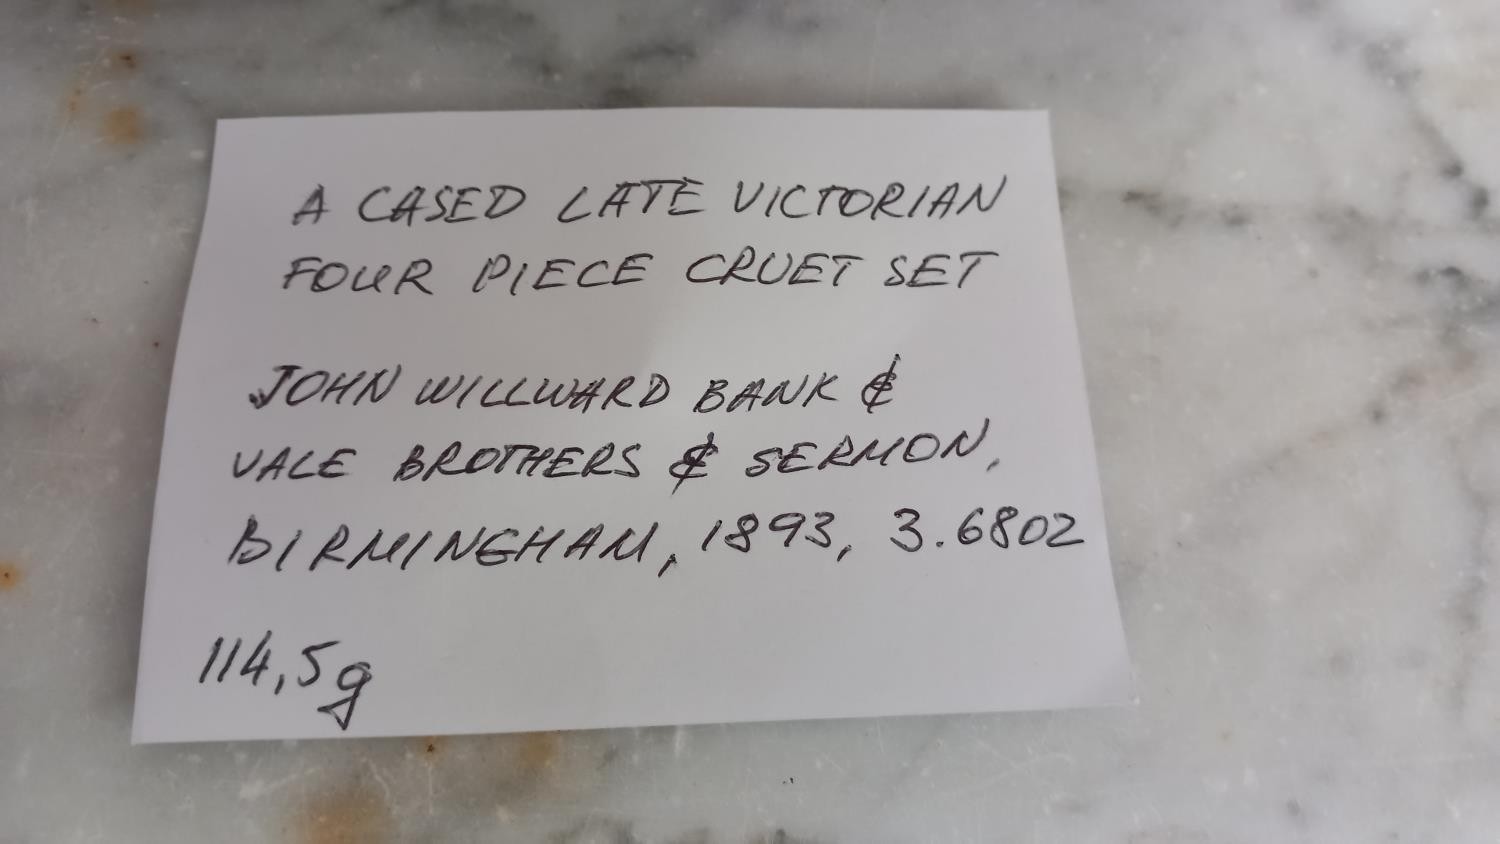 A CASED LATE VICTORIAN
FOUR PIECE CRUET SET
JOHN WILLWARD BANK &
VALE BROTHERS & SERMON,
BIRMINGHAM, 1893, 3.6802
114,5g